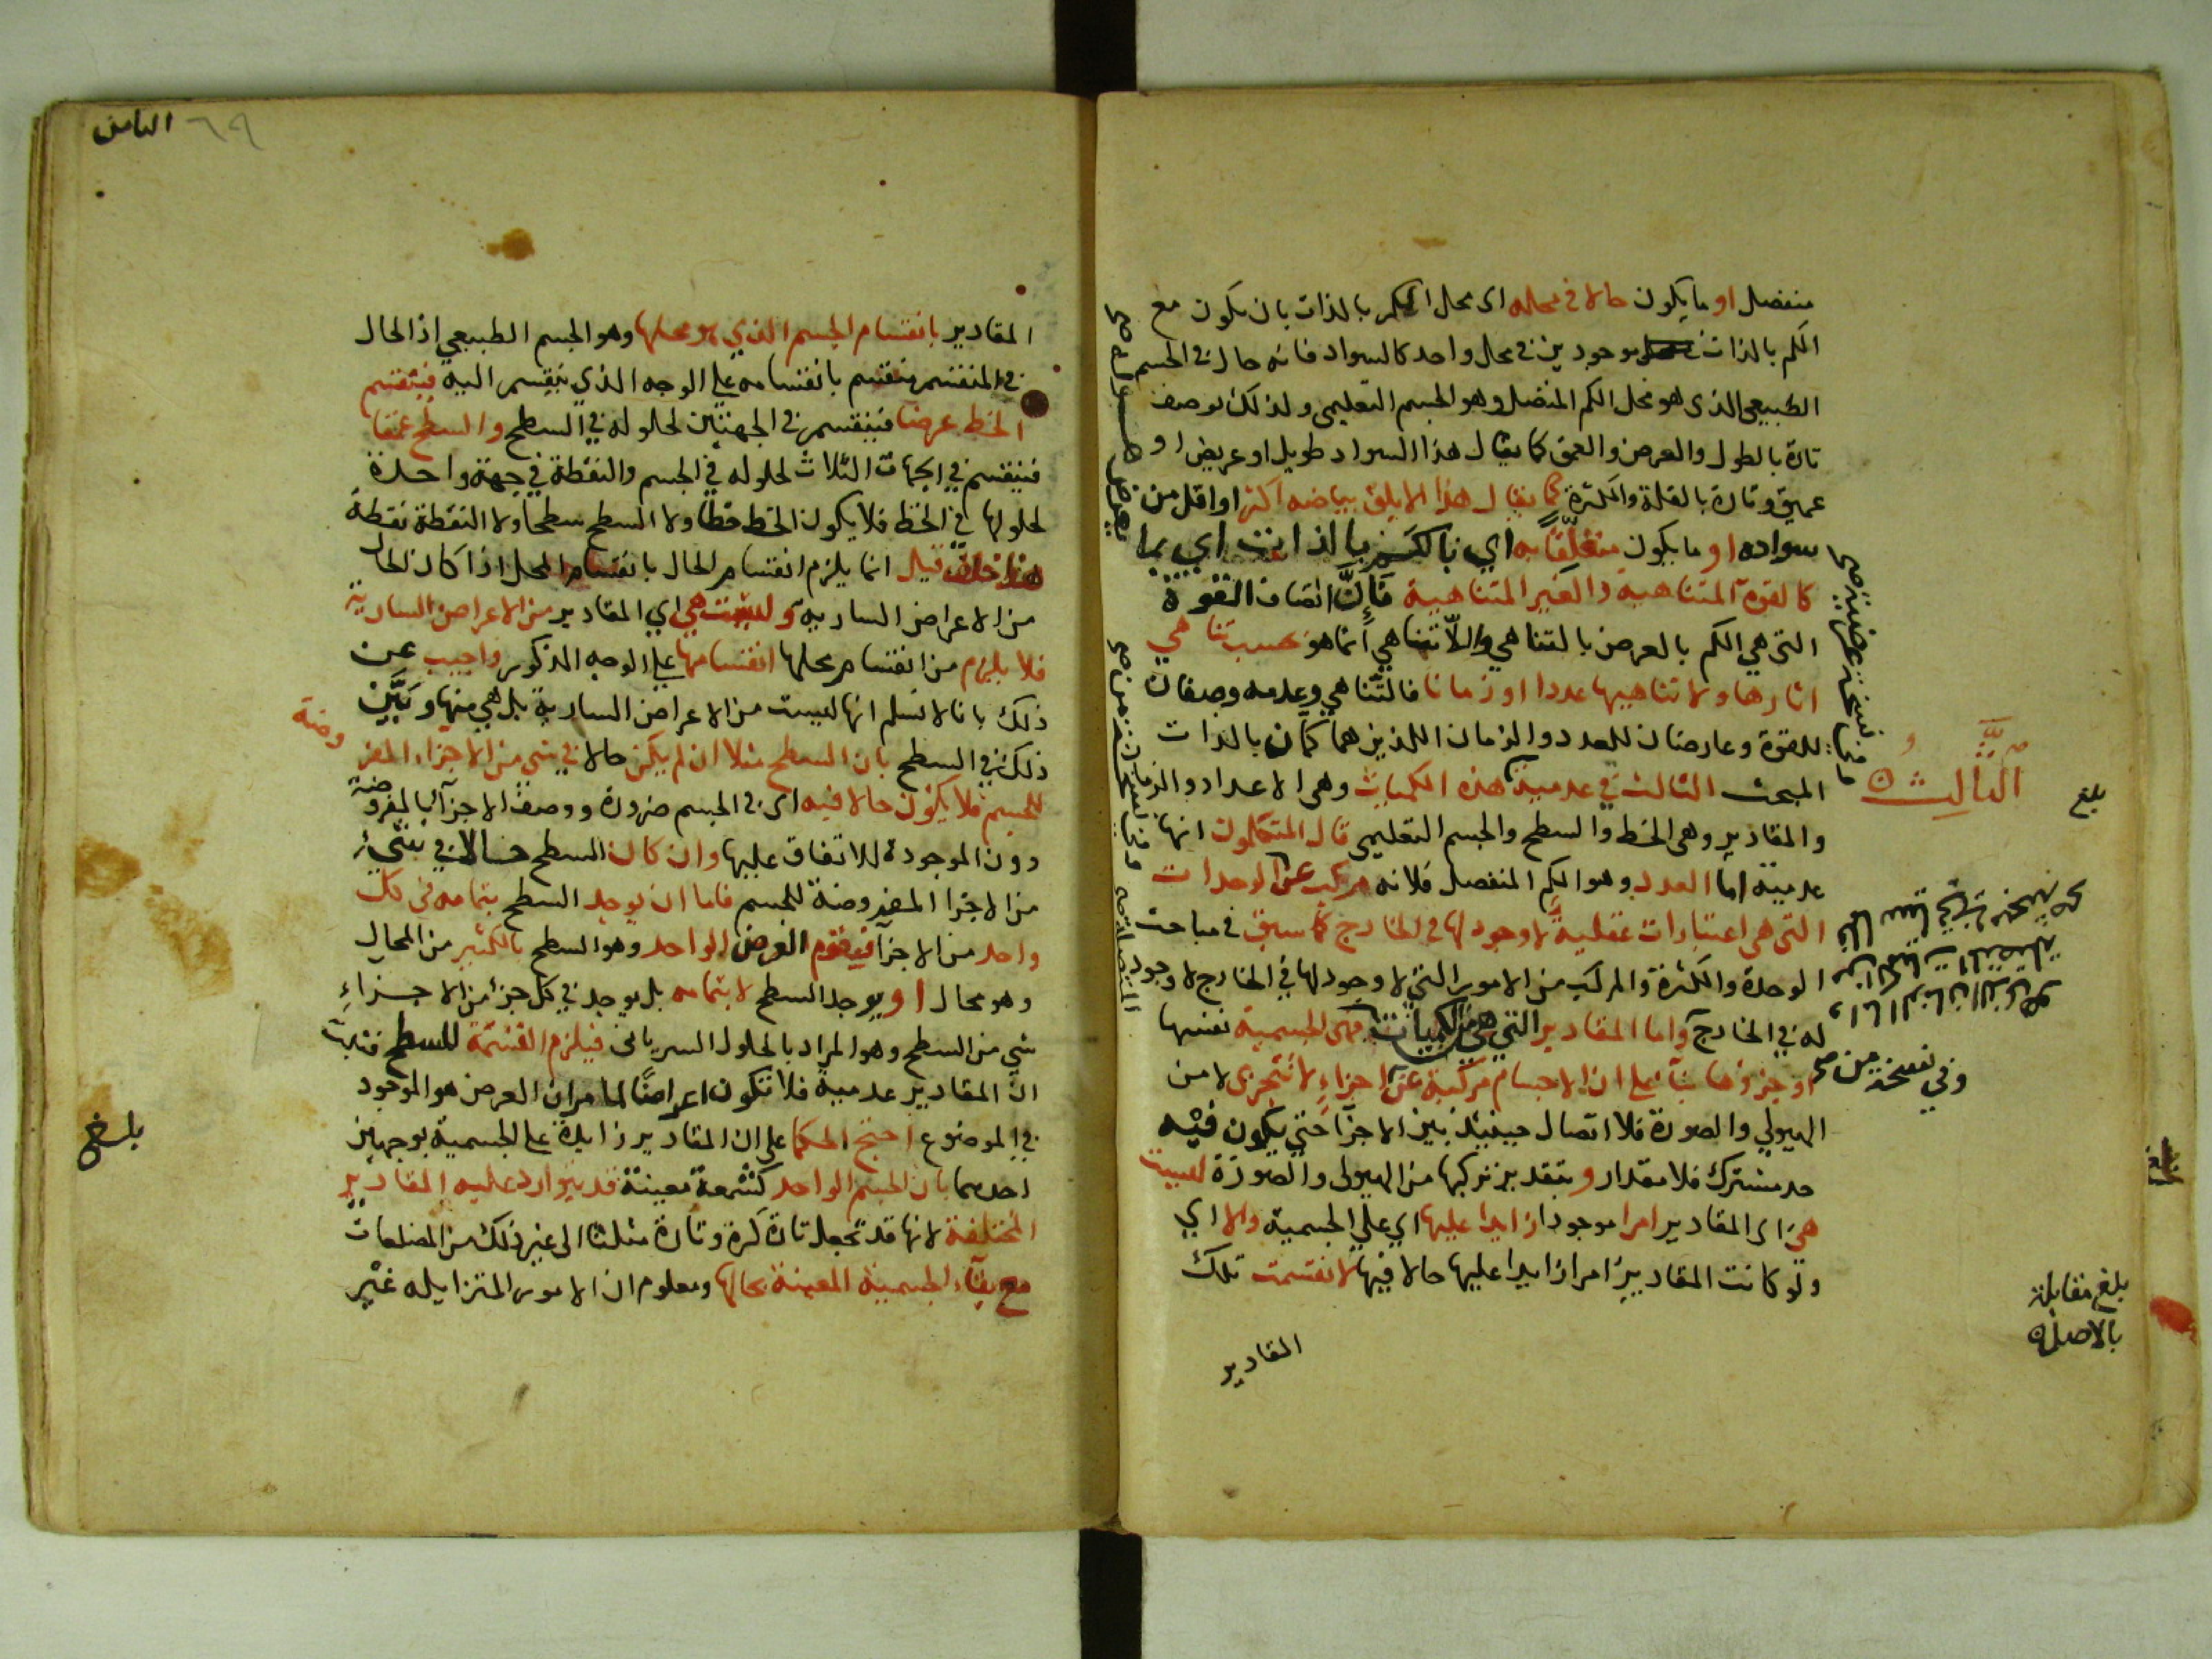 منفصل او ما يكون حالا في محله اى محل الكم بالذات بان يكون مع
الكم بالذات موجودين في محل واحد كالسواد فانه حال في الجسم
الطبيعي الذى هو محل الكم المنفصل وهو الجسم التعليمى ولذلك يوصف
تارة بالطول والعرض والعمق كما يقال هذا السواد طويل او عريض او
عميق وتارة بالقلة والكثرة كما يقال هذا الابلق بياضه اكثر او اقل من
سواده او ما يكون متعلقا به اي بالكم بالذات اي بما
كالقوة المتناهية والغير المتناهية فإنّ اتصاف القوة
التى هي الكم بالعرض بالتناهي واللّاتناهي إنما هو بحسب تناهي
اثارها ولا تناهيها عددا او زمانا فالتناهي وعدمه وصفان
للقوة وعارضان للعدد والزمان اللذين هما كمّان بالذات
المبحث الثالث في عدمية هذه الكميات وهى الاعداد والزمان
والمقادير وهى الخط والسطح والجسم التعليمي قال المتكلمون انها
عدمية اما العدد وهو الكم المنفصل فلانه مركب عن الوحدات
التى هى اعتبارات عقلية لا وجود لها في الخارج كما سبق في مباحث
الوحدة والكثرة والمركب من الامور التي لا وجود لها في الخارج لا وجود
له في الخارج واما المقادير التي هي من الكميات فهى الجسمية نفسها
او جزؤها بنآء على ان الاجسام مركبة عن اجزاءٍ لا تتجزى لا من
الهيولي والصورة فلا اتصال حينئذ بين الاجزآ حتي يكون فيه
حد مشترك فلا مقدار وبتقدير تركبها من الهيولى والصورة ليست
هي اى المقادير امرا موجودا زايدا عليها اي علي الجسمية والا اي
ولو كانت المقادير امرا زايدا عليها حالا فيها لانقسمت تلك
المقادير
الثالث
بلغ
وفي نسخة من صح
بلغ مقابلة
بالاصل
٦٩
الثامن
المقادير بانقسام الجسم الذي هو محلها وهو الجسم الطبيعي اذ الحال
في المنقسم منقسم بانقسامه على الوجه الذي ينقسم اليه فينقسم
الخط عرضا فينقسم في الجهتين لحلوله في السطح والسطح عمقا
فينقسم في الجهات الثلاث لحلوله في الجسم والنقطة في جهة واحدة
لحلولها في الخط فلا يكون الخط خطا ولا السطح سطحا ولا النقطة نقطة
هذا خلف قيل انما يلزم انقسام الحال بانقسام المحل اذا كان الحال
من الاعراض السارية وليست هي اي المقادير من الاعراض السارية
فلا يلزم من انقسام محلها انقسامها على الوجه المذكور واجيب عن
ذلك بانا لا نسلم انها ليست من الاعراض السارية بل هي منها وبَيَّن
ذلك في السطح بان السطح مثلا ان لم يكن حالا في شي من الاجزاء المفر
وضة
للجسم فلا يكون حالا فيه اى في الجسم ضرورة ووصف الاجزآ بالمفروضة
دون الموجودة للاتفاق عليها وان كان السطح حالا في شيء
من الاجزا المفروضة للجسم فاما ان يوجد السطح بتمامه في كل
واحد من الاجزآ فيقوم العرض الواحد وهو السطح بالكثير من المحال
وهو محال او يوجد السطح لا بتمامه بل يوجد في كل جزء من الاجزاءِ
شي من السطح وهو المراد بالحلول السرياني فيلزم القسمة للسطح فثبت
ان المقادير عدمية فلا تكون اعراضًا لما مر ان العرض هو الموجود
في الموضوع احتج الحكما على ان المقادير زايدة على الجسمية بوجهين
احدهما بان الجسم الواحد كشمعة معينة قد يتوارد عليه المقادير
المختلفة لانها قد تجعل تارة كرة وتارة مثلثا الى غير ذلك من المضلعات
مع بقآء الجسمية المعينة بحالها ومعلوم ان الامور المتزايله غير
بلغ